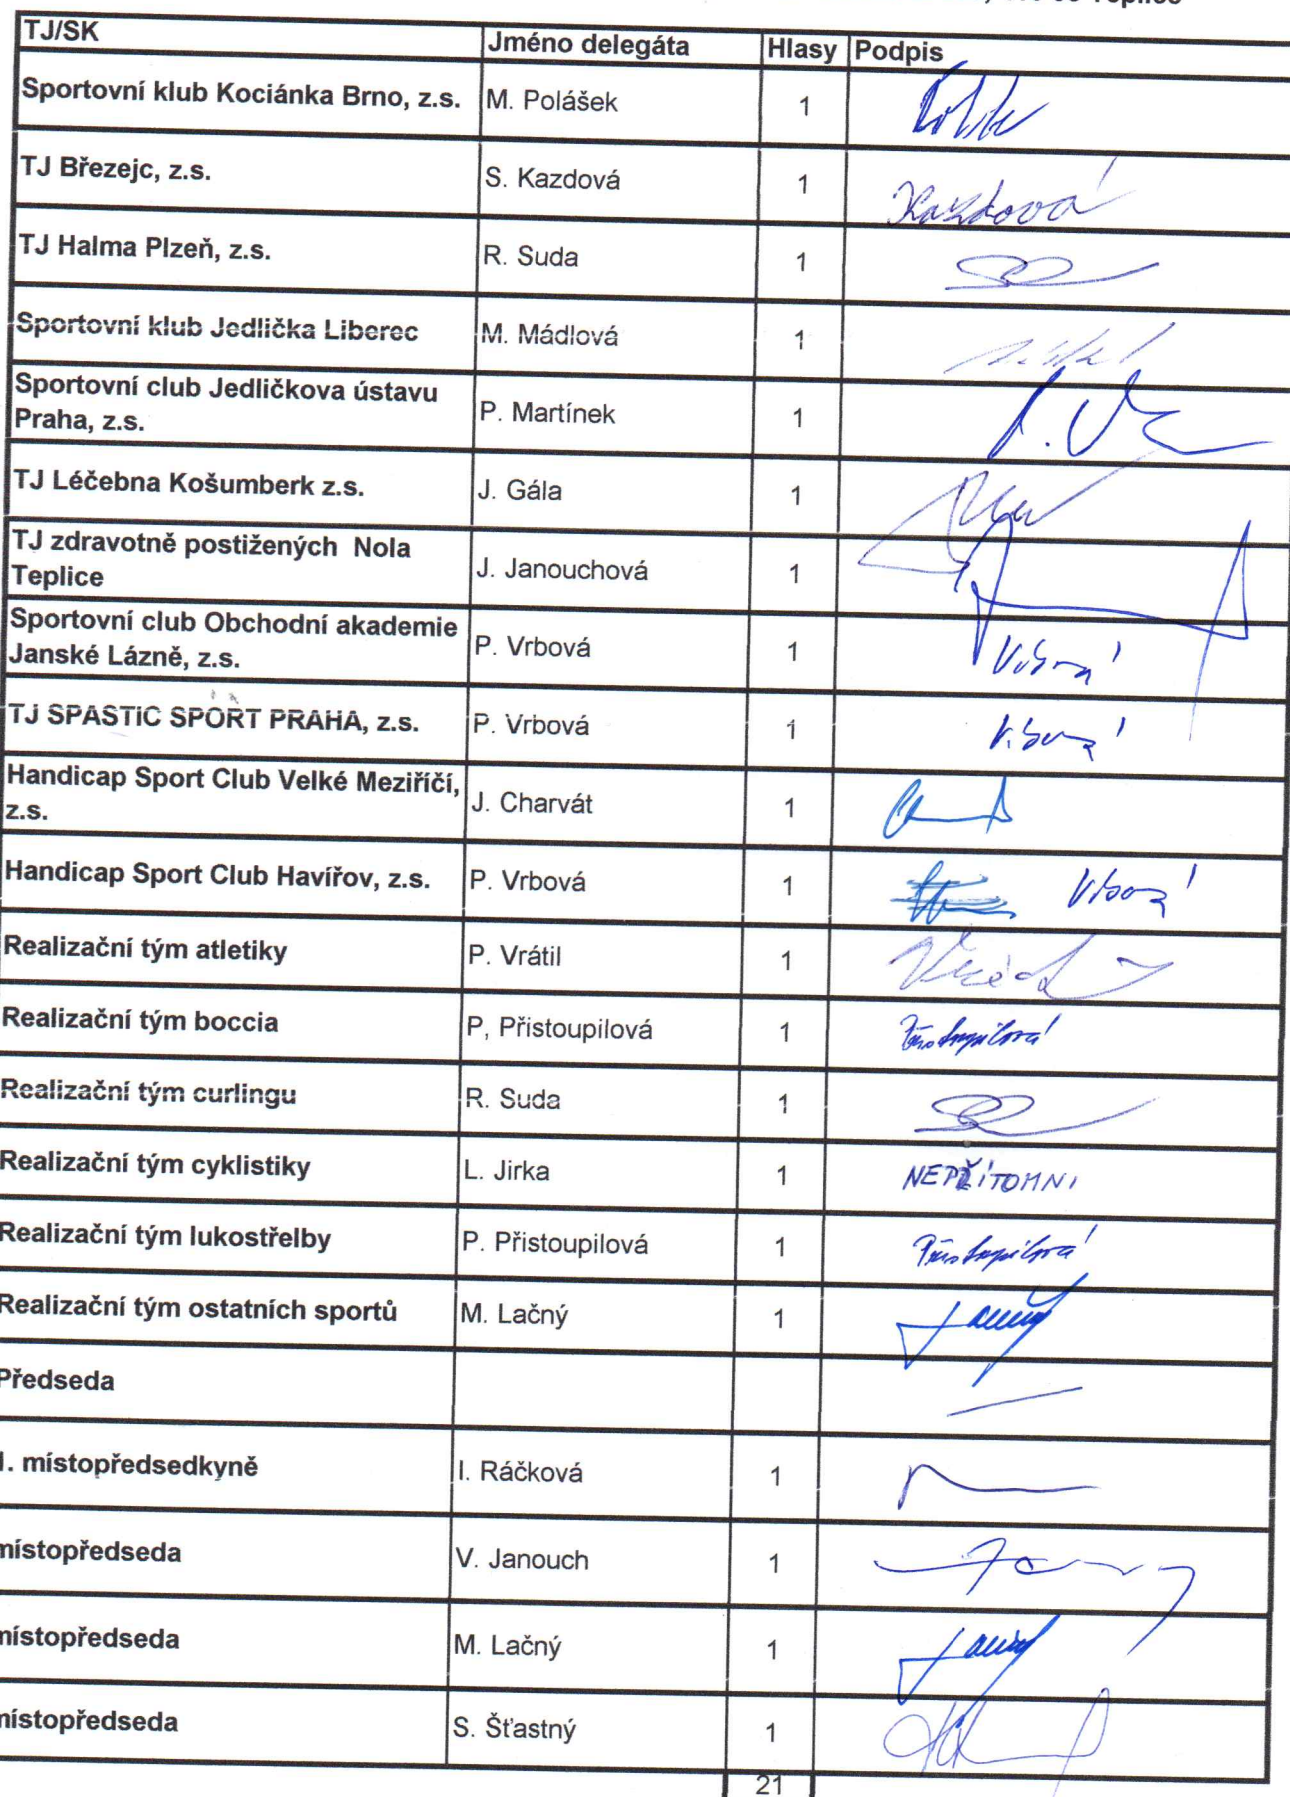 Teplice
TJ/SK Jméno delegáta Hlasy Podpis
Sportovní klub Kociánka Brno, z.s. M. Polášek 1
TJ Březejc, z.s. S. Kazdová 1 Kazdová
TJ Halma Plzeň, z.s. R. Suda 1
Sportovní klub Jedlička Liberec M. Mádlová 1
Sportovní club Jedličkova ústavu
Praha, z.s. P. Martínek 1
TJ Léčebna Košumberk z.s. J. Gála 1
TJ zdravotně postižených Nola
Teplice J. Janouchová 1
Sportovní club Obchodní akademie
Janské Lázně, z.s. P. Vrbová 1 Vrbová
TJ SPASTIC SPORT PRAHA, z.s. P. Vrbová 1 Vrbová
Handicap Sport Club Velké Meziříčí,
z.s. J. Charvát 1
Handicap Sport Club Havířov, z.s. P. Vrbová 1 Vrbová
Realizační tým atletiky P. Vrátil 1
Realizační tým boccia P, Přistoupilová 1 Přistoupilová
Realizační tým curlingu R. Suda 1
Realizační tým cyklistiky L. Jirka 1 NEPŘÍTOMNI
Realizační tým lukostřelby P. Přistoupilová 1 Přistoupilová
Realizační tým ostatních sportů M. Lačný 1 Lačný
Předseda
1. místopředsedkyně I. Ráčková 1
místopředseda V. Janouch 1
místopředseda M. Lačný 1 Lačný
místopředseda S. Šťastný 1
21